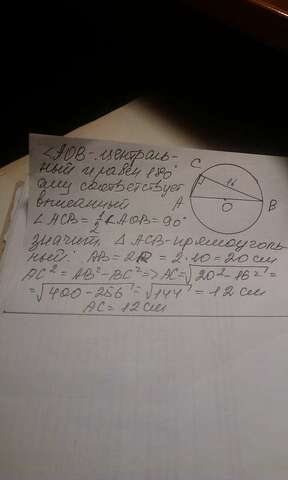 ∠AOB - централь-
ный и равен 180°
ему соответствует
вписанный
∠ACB = 1/2 ∠AOB = 90°
значит, △ ACB - прямоуголь-
ный: AB = 2R = 2 · 10 = 20 см
AC² = AB² - BC² => AC = √20² - 16² =
= √400 - 256 = √144 = 12 см
AC = 12 см
C
16
A
O
B